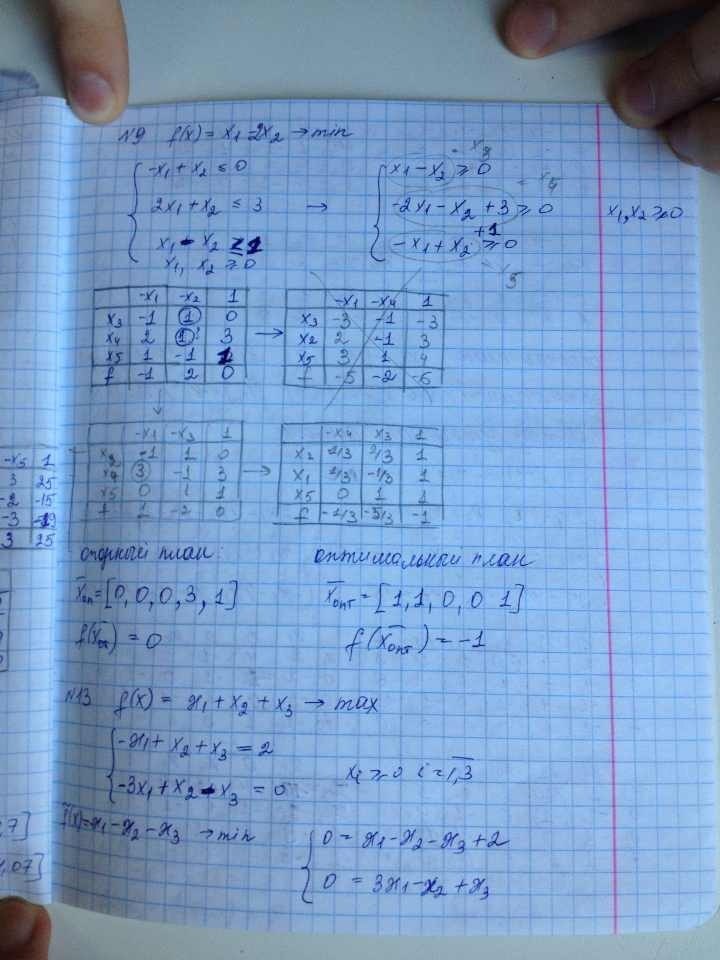 №9 f(x) = x₁-2x₂ → min
-x₁ + x₂ ≤ 0
2x₁ + x₂ ≤ 3
x₁ - x₂ ≤ 1
x₁, x₂ ≥ 0
→
x₁ - x₂ ≥ 0 - x₃
-2x₁ - x₂ + 3 ≥ 0 = x₄
-x₁ + x₂ + 1 ≥ 0 - x₅
x₁, x₂ ≥ 0
-x₁ -x₂ 1
x₃ -1 1 0
x₄ 2 1 3
x₅ 1 -1 1
f -1 2 0
→
-x₁ -x₄ 1
x₃ -3 -1 -3
x₂ 2 -1 3
x₅ 3 1 4
f -5 -2 -6
↓
-x₁ -x₃ 1
x₂ -1 1 0
x₄ 3 -1 3
x₅ 0 1 1
f 1 -2 0
→
-x₄ x₃ 1
x₂ 1/3 2/3 1
x₁ 1/3 -1/3 1
x₅ 0 1 1
f -1/3 -5/3 -1
-x₅ 1
3 25
-2 -15
-3 -19
3 25
опорный план:
x̄оп = [0, 0, 0, 3, 1]
f(x̄оп) = 0
оптимальный план
x̄опт = [1, 1, 0, 0 1]
f(x̄опт) = -1
№13 f(x) = x₁ + x₂ + x₃ → max
-x₁ + x₂ + x₃ = 2
-3x₁ + x₂ - x₃ = 0
xᵢ ≥ 0 i = 1,3
f̄(x)=-x₁-x₂-x₃ → min
0 = x₁-x₂-x₃+2
0 = 3x₁-x₂+x₃
,7]
,07]